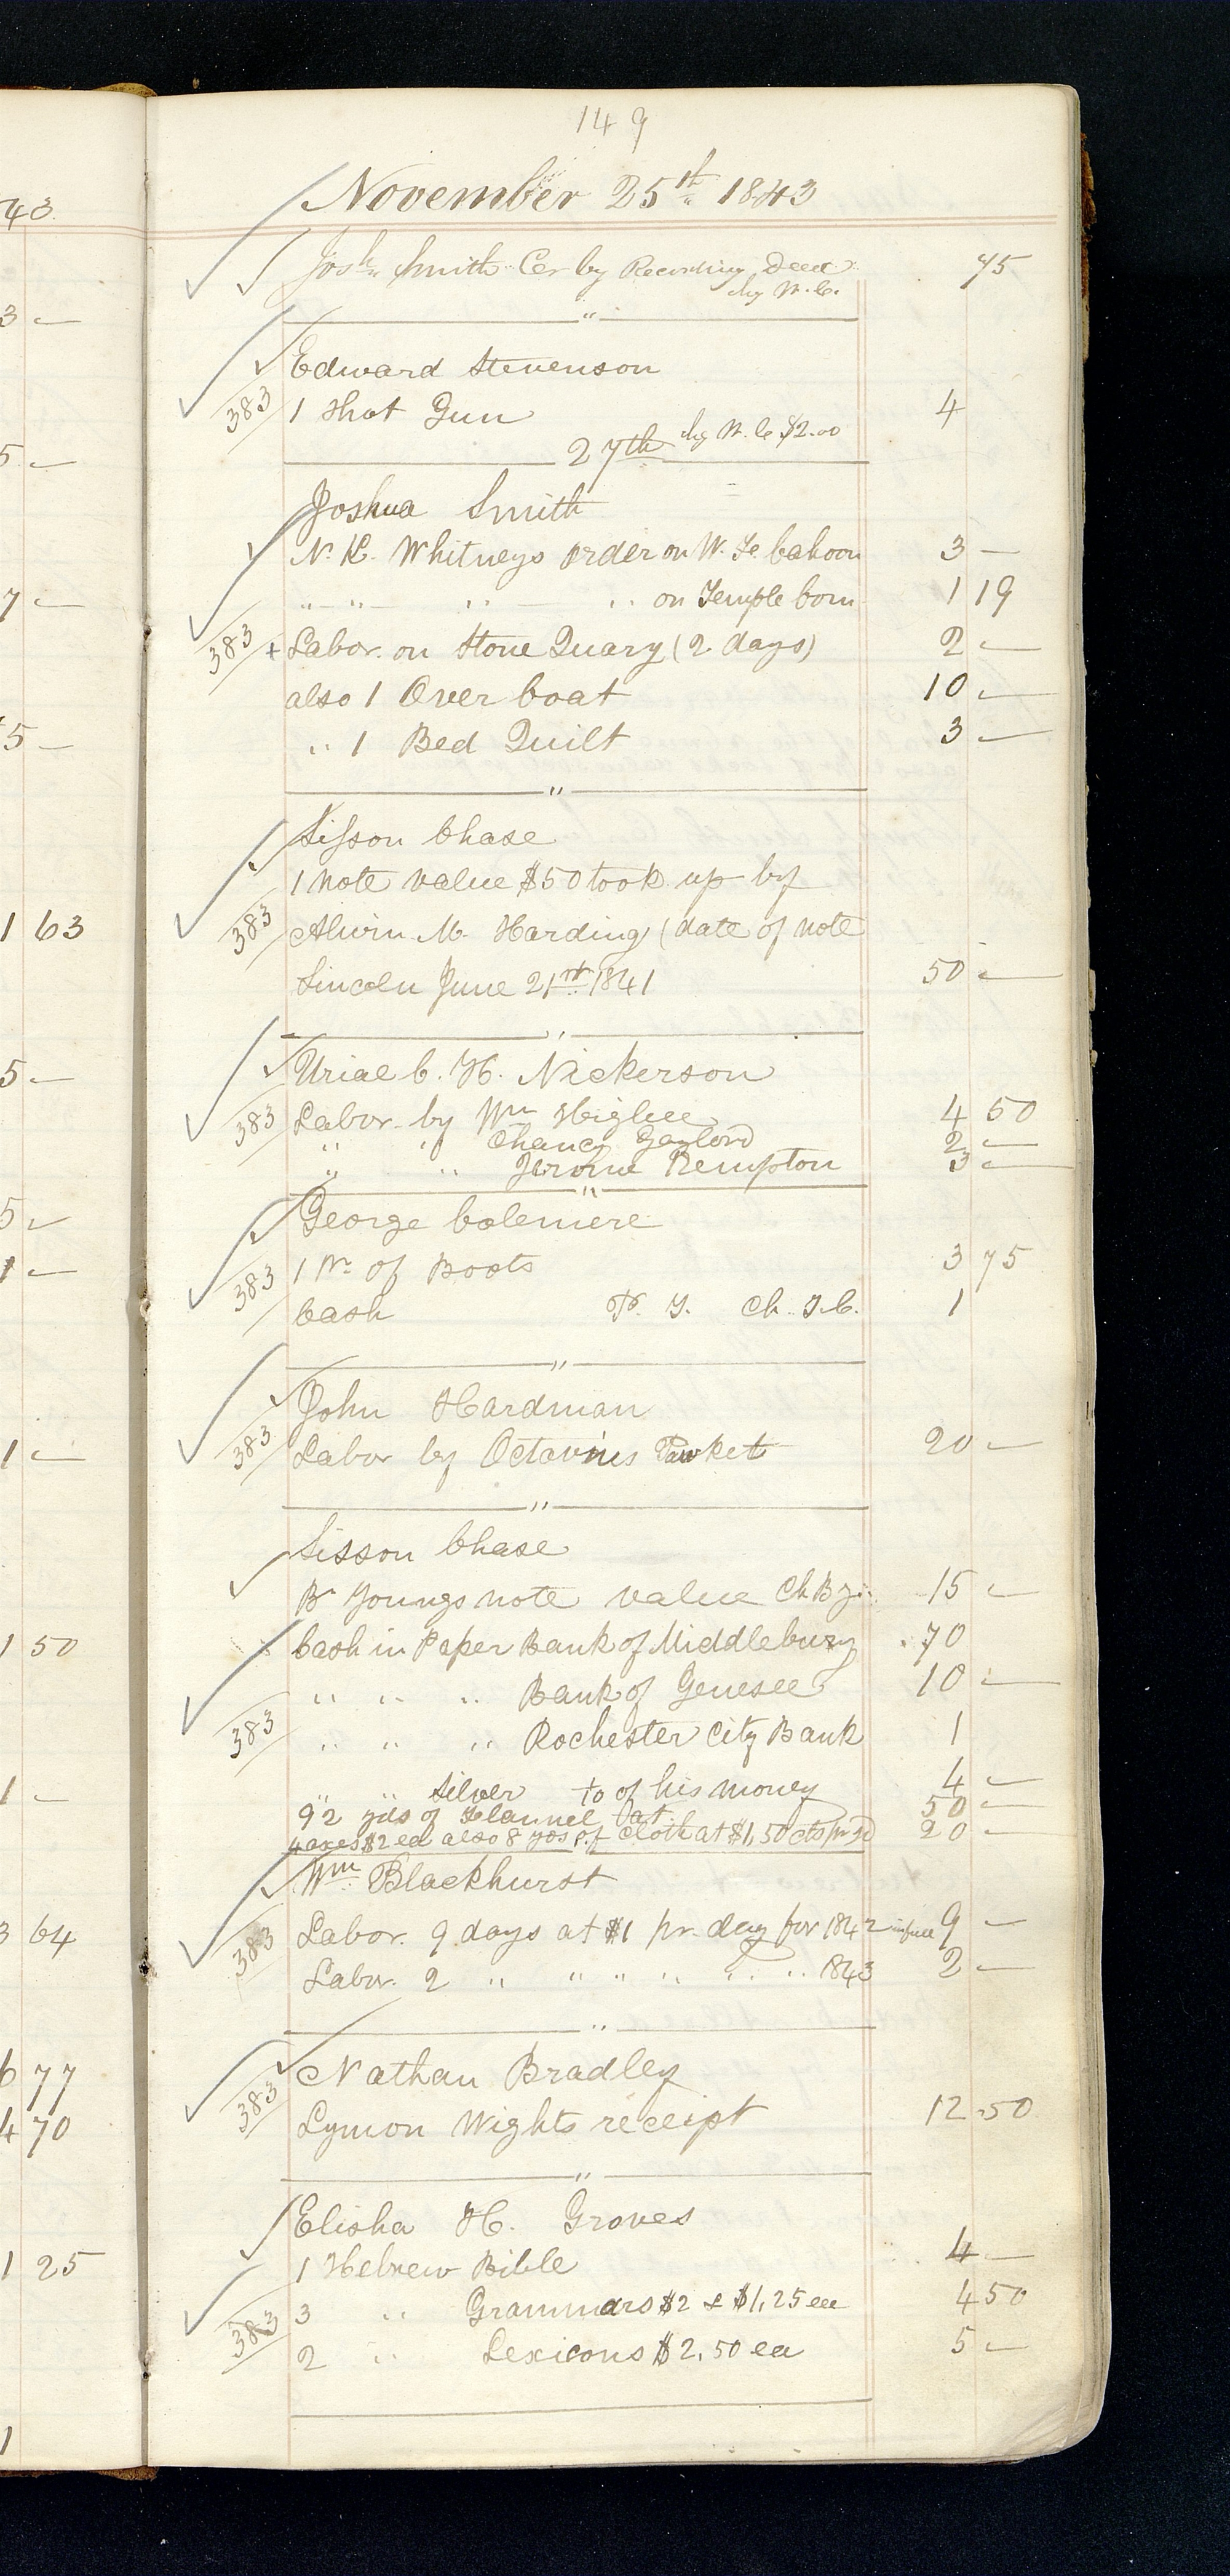 149
November 25th 1843
Josh Smith Cer by Recording Deed 75
chg W. C.
Edward Stevenson
383 1 Shot Gun 4
27th chg W. C $2.00
Joshua Smith
N. K. Whitneys order on W. F. Cahoon 3 —
" " " " on Temple Com 1 19
383 + Labor on Stone Quary (2 days) 2 —
also 1 Over Coat 10 —
" 1 Bed Quilt 3 —
"
Sisson Chase
1 note value $50 took up by
383 Alwin M. Harding (date of note
Lincoln June 21st 1841 50 —
"
Uriael C. H. Nickerson
383 Labor by Wm Higbee 4 50
" " Chancy Gaylord 2 —
" " Jerome Kempton 3 —
"
George Colemere
383 1 Pr of Boots 3 75
Cash P. T. Ch. T.C. 1
"
John Hardman
383 Labor by Octavius Pauket 20 —
"
Sisson Chase
Br Youngs note value Ch B y 15 —
Cash in Paper Bank of Middlebury 70
" " " Bank of Genesee 10 —
383 " " " Rochester City Bank 1
" " Silver to of his money 4 —
92 yds of Flannel at 50 —
4 axes $2 ea also 8 yds of Cloth at $1,50 cts pr yd 20 —
Wm Blackhurst
383 Labor 9 days at $1 pr. day for 1842 in full 9 —
Labor 2 " " " " " " 1843 2 —
"
Nathan Bradley
383 Lymon Wights receipt 12.50
"
Elisha H. Groves
1 Hebrew Bible 4 —
383 3 " Grammars $2 & $1,25 ea 4 50
2 " Lexicons $2,50 ea 5 —